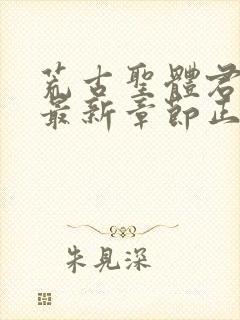 荒古聖體君
最新章節正
朱見深